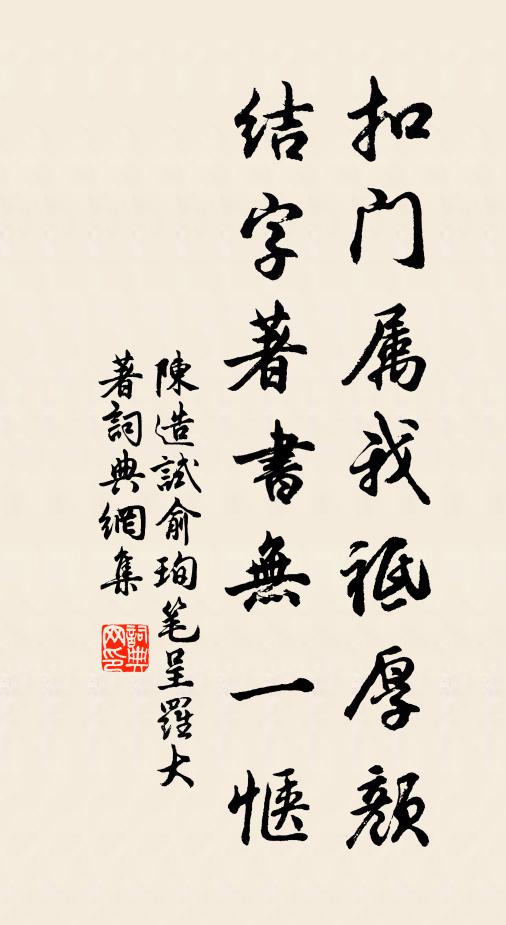 扣门属我祗厚颜
结字著書無一惬
陳造試俞珣笔呈羅大
著詞典網集
詞典网印